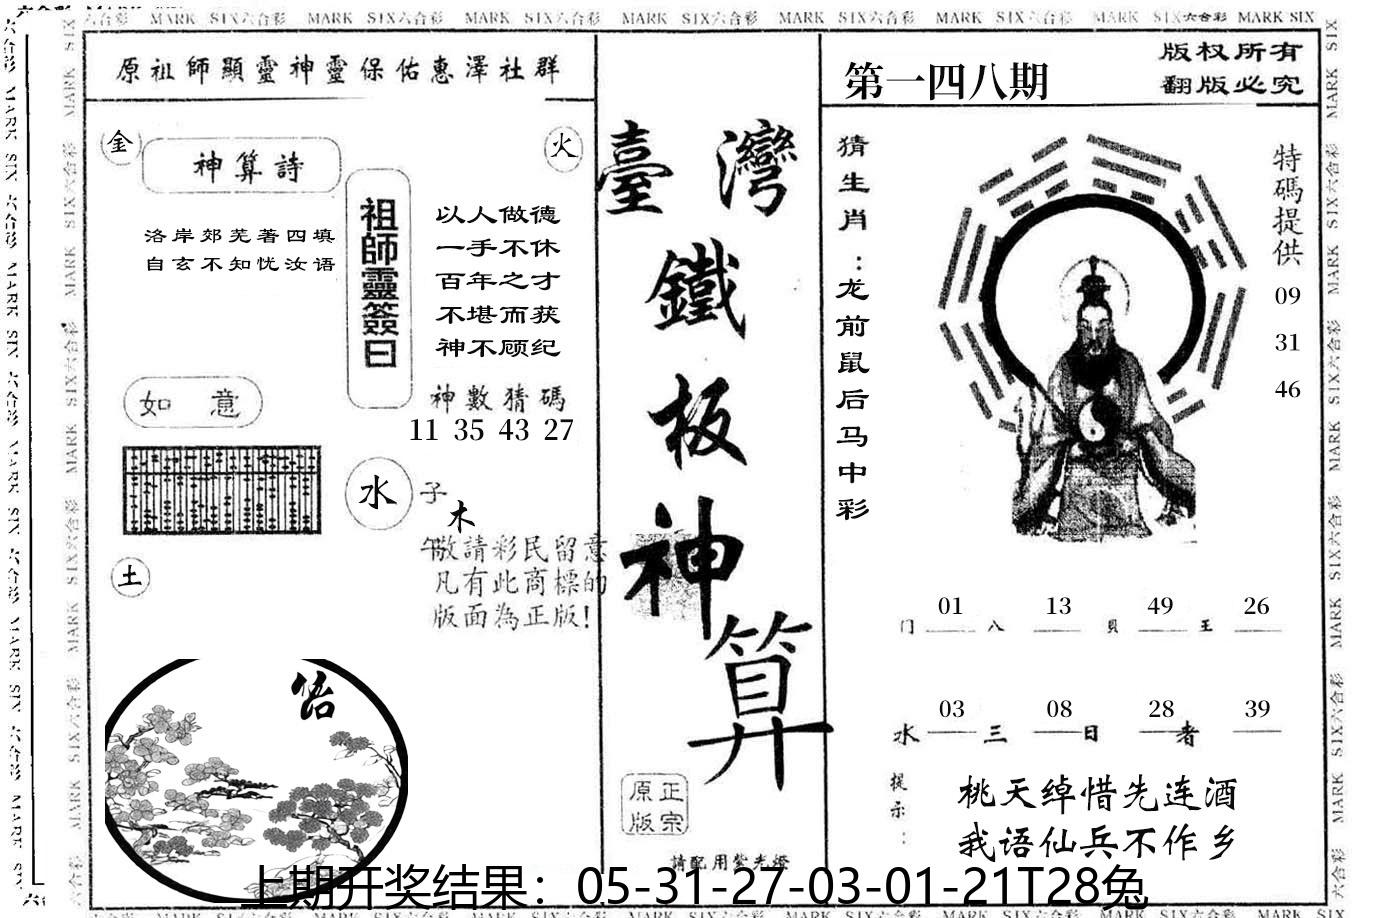 MARK SIX六合彩 MARK SIX六合彩 MARK SIX六合彩 MARK SIX六合彩 MARK SIX六合彩 MARK SIX六合彩 MARK SIX六合彩 MARK SIX
原祖師顯靈神靈保佑惠澤社群
金
神算詩
火
洛岸郊芜著四填
自玄不知忧汝语
祖師靈簽曰
以人做德
一手不休
百年之才
不堪而获
神不顾纪
神數猜碼
11 35 43 27
如 意
水
子
木
午
土
敬請彩民留意
凡有此商標的
版面為正版!
臺灣
鐵
板
神
算
正宗
原版
請配用紫光燈
第一四八期
版权所有
翻版必究
猜生肖:龙前鼠后马中彩
特碼提供
09
31
46
01 13 49 26
门 八 貝 王
03 08 28 39
水 三 日 者
提示:
桃天绰惜先连酒
我语仙兵不作乡
上期开奖结果：05-31-27-03-01-21T28兔